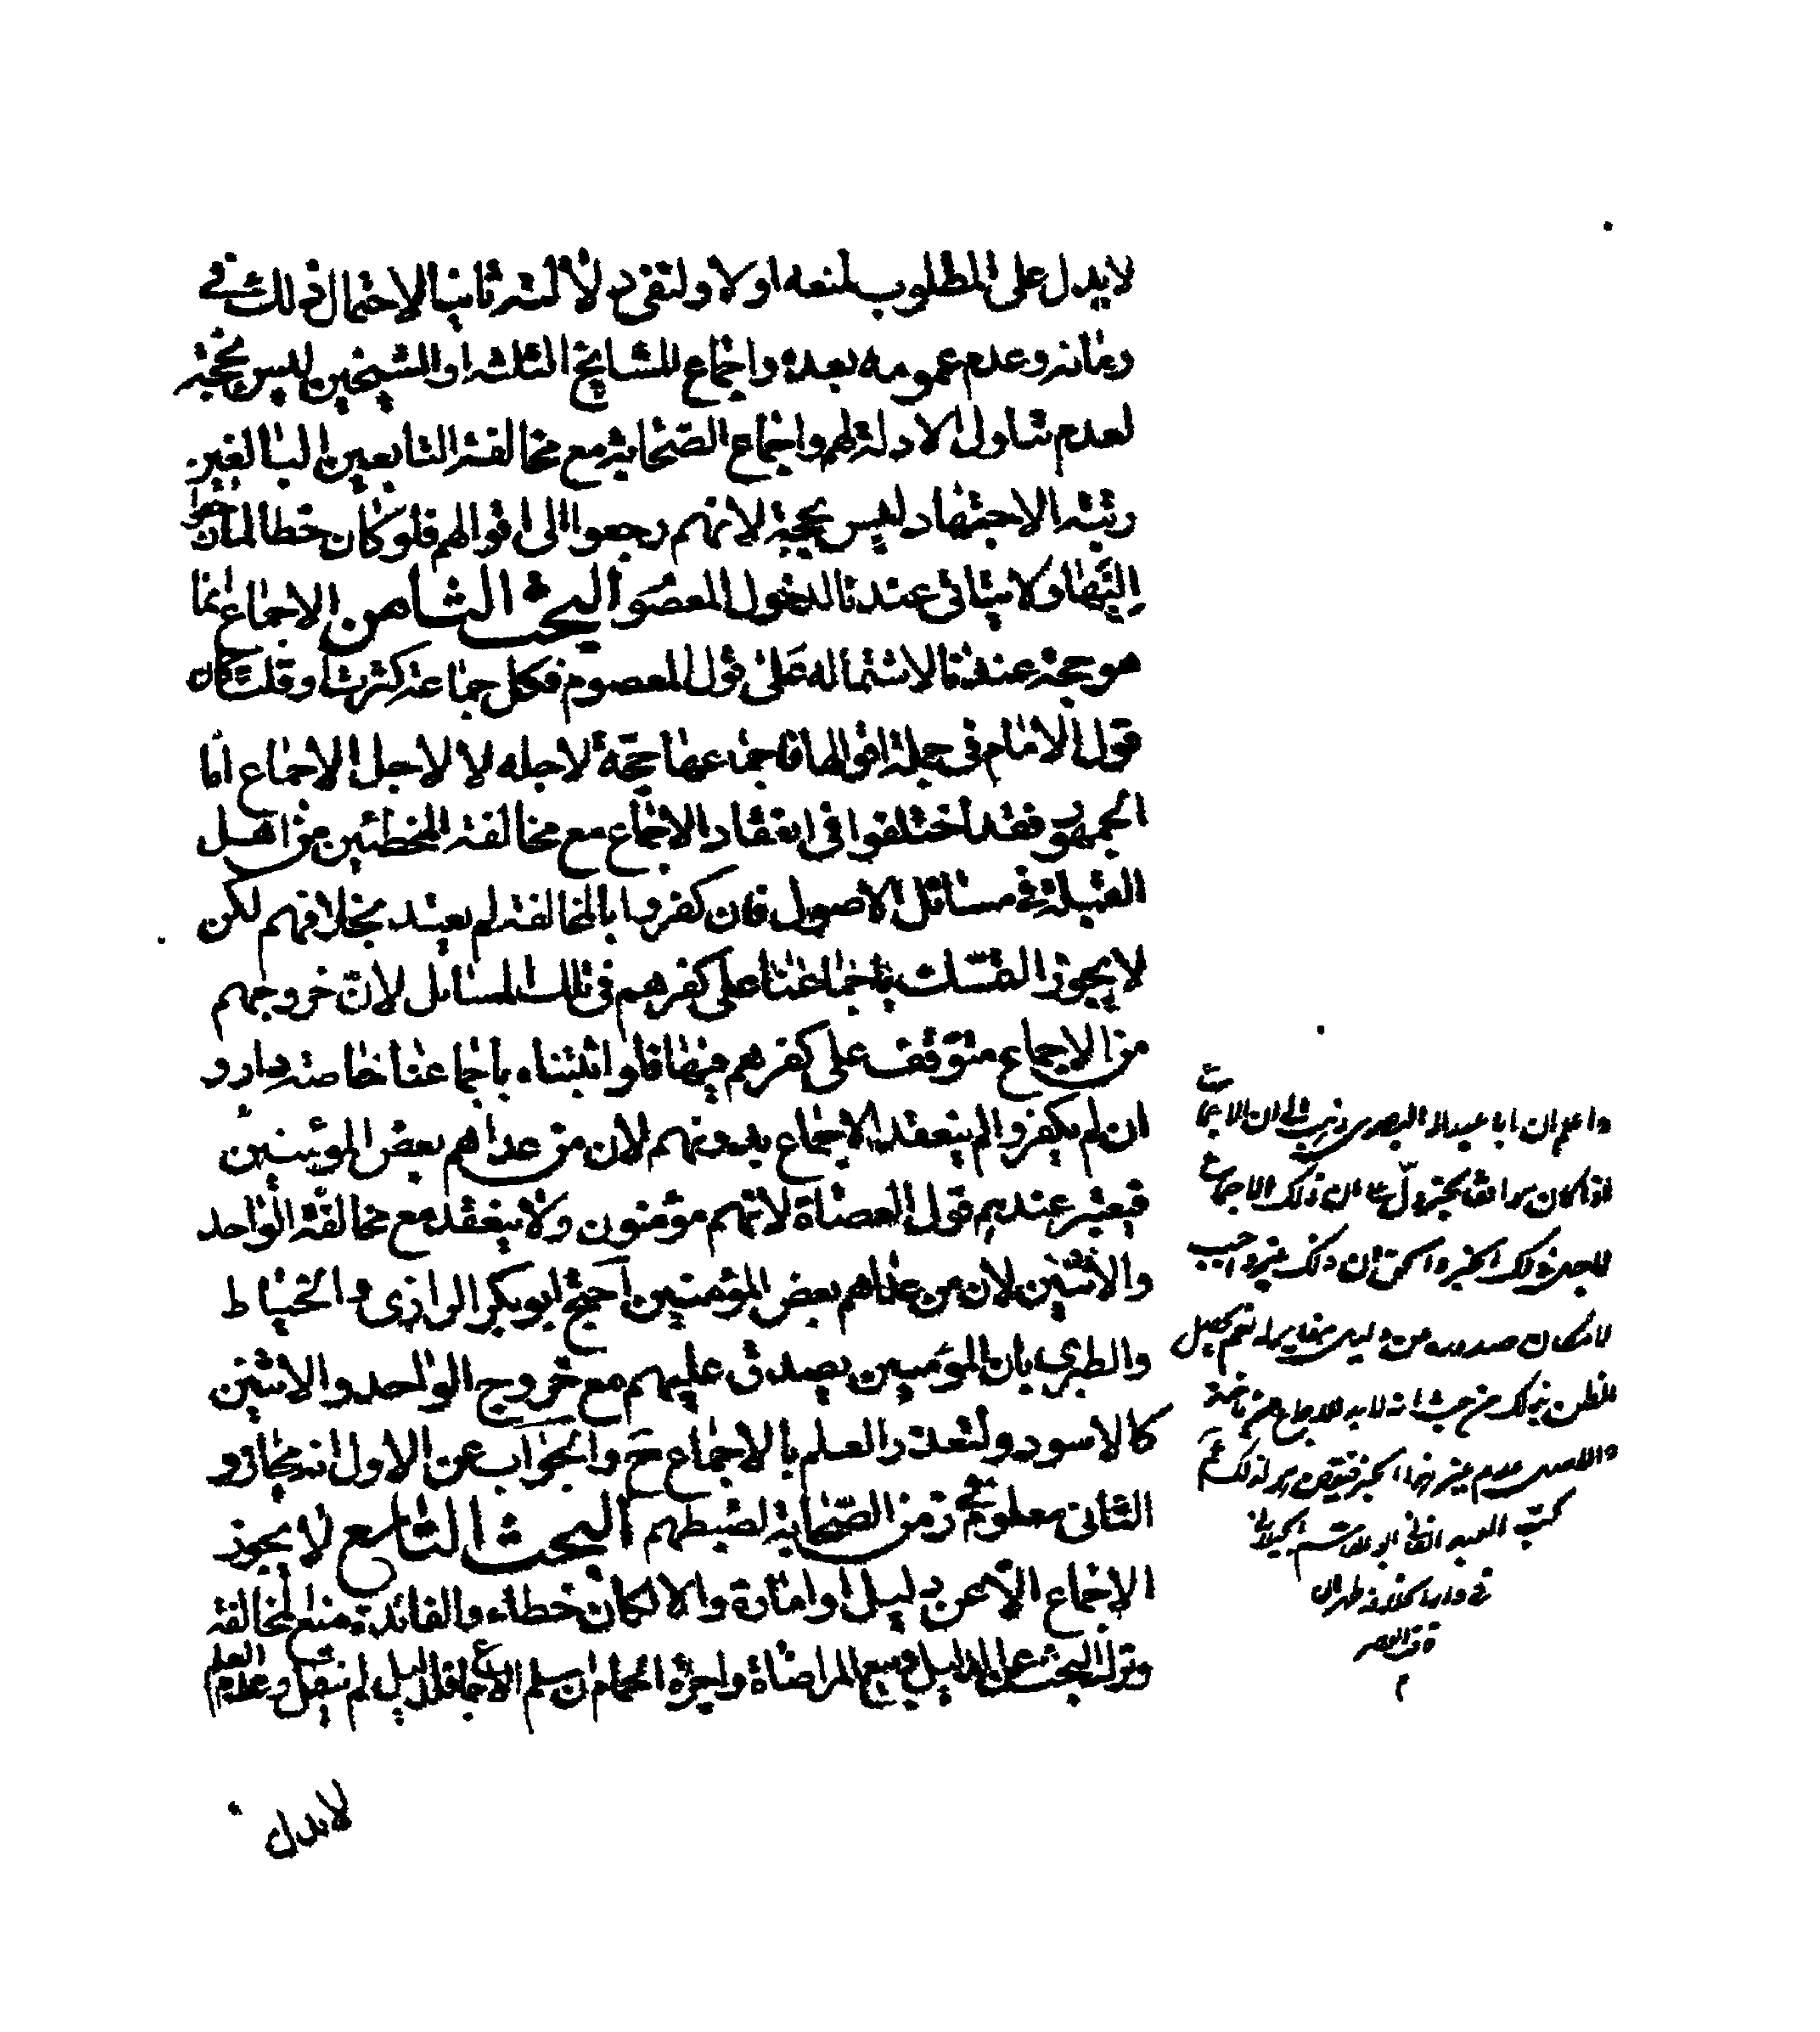 لا يدل على المطلوب لمنعه اولا ولنفى دلالته ثانيا لاحتمال ذلك فى
زمانه وعدم عمومه بعده واجماع المشايخ الثلثه او الشيخين ليس بحجة
لعدم تناول الادلة لهم واجماع الصحابة مع مخالفة التابعين البالغين
رتبة الاجتهاد ليس بحجة لانهم رجعوا الى اقوالهم فلو كان خطا لما رجعوا
اليها ولا يتاتى عندنا لدخول المعصوم البحث الثامن الاجماع انما
هو حجة عندنا لاشتماله على قول المعصوم فكل جماعة كثرت او قلت كان
قول الامام فى جملة اقوالها فاجماعها حجة لاجله لا لاجل الاجماع اما
الجمهور فقد اختلفوا فى انعقاد الاجماع مع مخالفة المخطئين من اهل
القبلة فى مسائل الاصول فان كفروا بالمخالفة لم يعتد بخلافهم لكن
لا يجوز التمسك باجماعنا على كفرهم فى تلك المسائل لان خروجهم
من الاجماع متوقف على كفرهم فيها فلو اثبتناه باجماعنا خاصة دار و
ان لم يكفروا لم ينعقد الاجماع بدونهم لان من عداهم بعض المؤمنين
فيعتبر عندهم قول العصاة لانهم مؤمنون ولا ينعقد مع مخالفة الواحد
والاثنين لان من عداهم بعض المؤمنين احتج ابو بكر الرازى والخياط
والطبرى بان المؤمنين يصدق عليهم مع خروج الواحد والاثنين
كالاسود ولتعذر العلم بالاجماع ح والجواب عن الاول انه مجاز و
الثانى معلوم فى زمن الصحابة لضبطهم البحث التاسع لا يجوز
الاجماع الا عن دليل او امارة والا لكان خطاء والفائدة منع المخالفة
وترك البحث عن الدليل وبيع المراضاة واجرة الحمام ان سلم الاجماع فالدليل لم ينقل وعدم العلم
لا يدل
واعلم ان ابا عبد الله البصرى ذهب الى ان الاجماع
اذا كان موافقا لخبر دلّ على ان ذلك الاجماع
لاجل ذلك الخبر والحق ان ذلك غير واجب
لامكان صدوره عن دليل نعم يحصل
الظن بذلك من حيث انه لا بد للاجماع من
والاصل عدم غير هذا الخبر
كتب العبد ابو القاسم
فى دار الخلافة طهران